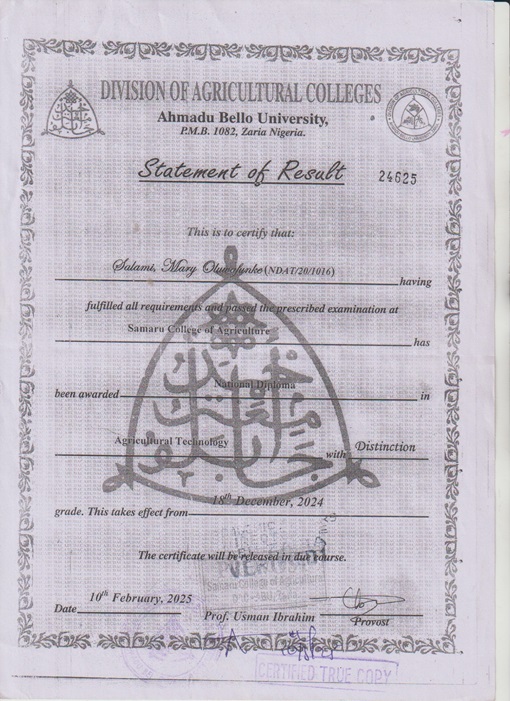 DIVISION OF AGRICULTURAL COLLEGES
Ahmadu Bello University,
P.M.B. 1082, Zaria Nigeria.
Statement of Result
24625
This is to certify that:
Salami, Mary (NDAT/20/1016)
having
fulfilled all requirements and passed the prescribed examination at
Samaru College of Agriculture
has
National Diploma
been awarded in
Agricultural Technology
with Distinction
18th December, 2024
grade. This takes effect from
The certificate will be released in due course.
Samaru College of Agriculture
10th February, 2025
Date
Prof. Usman Ibrahim
Provost
CERTIFIED TRUE COPY